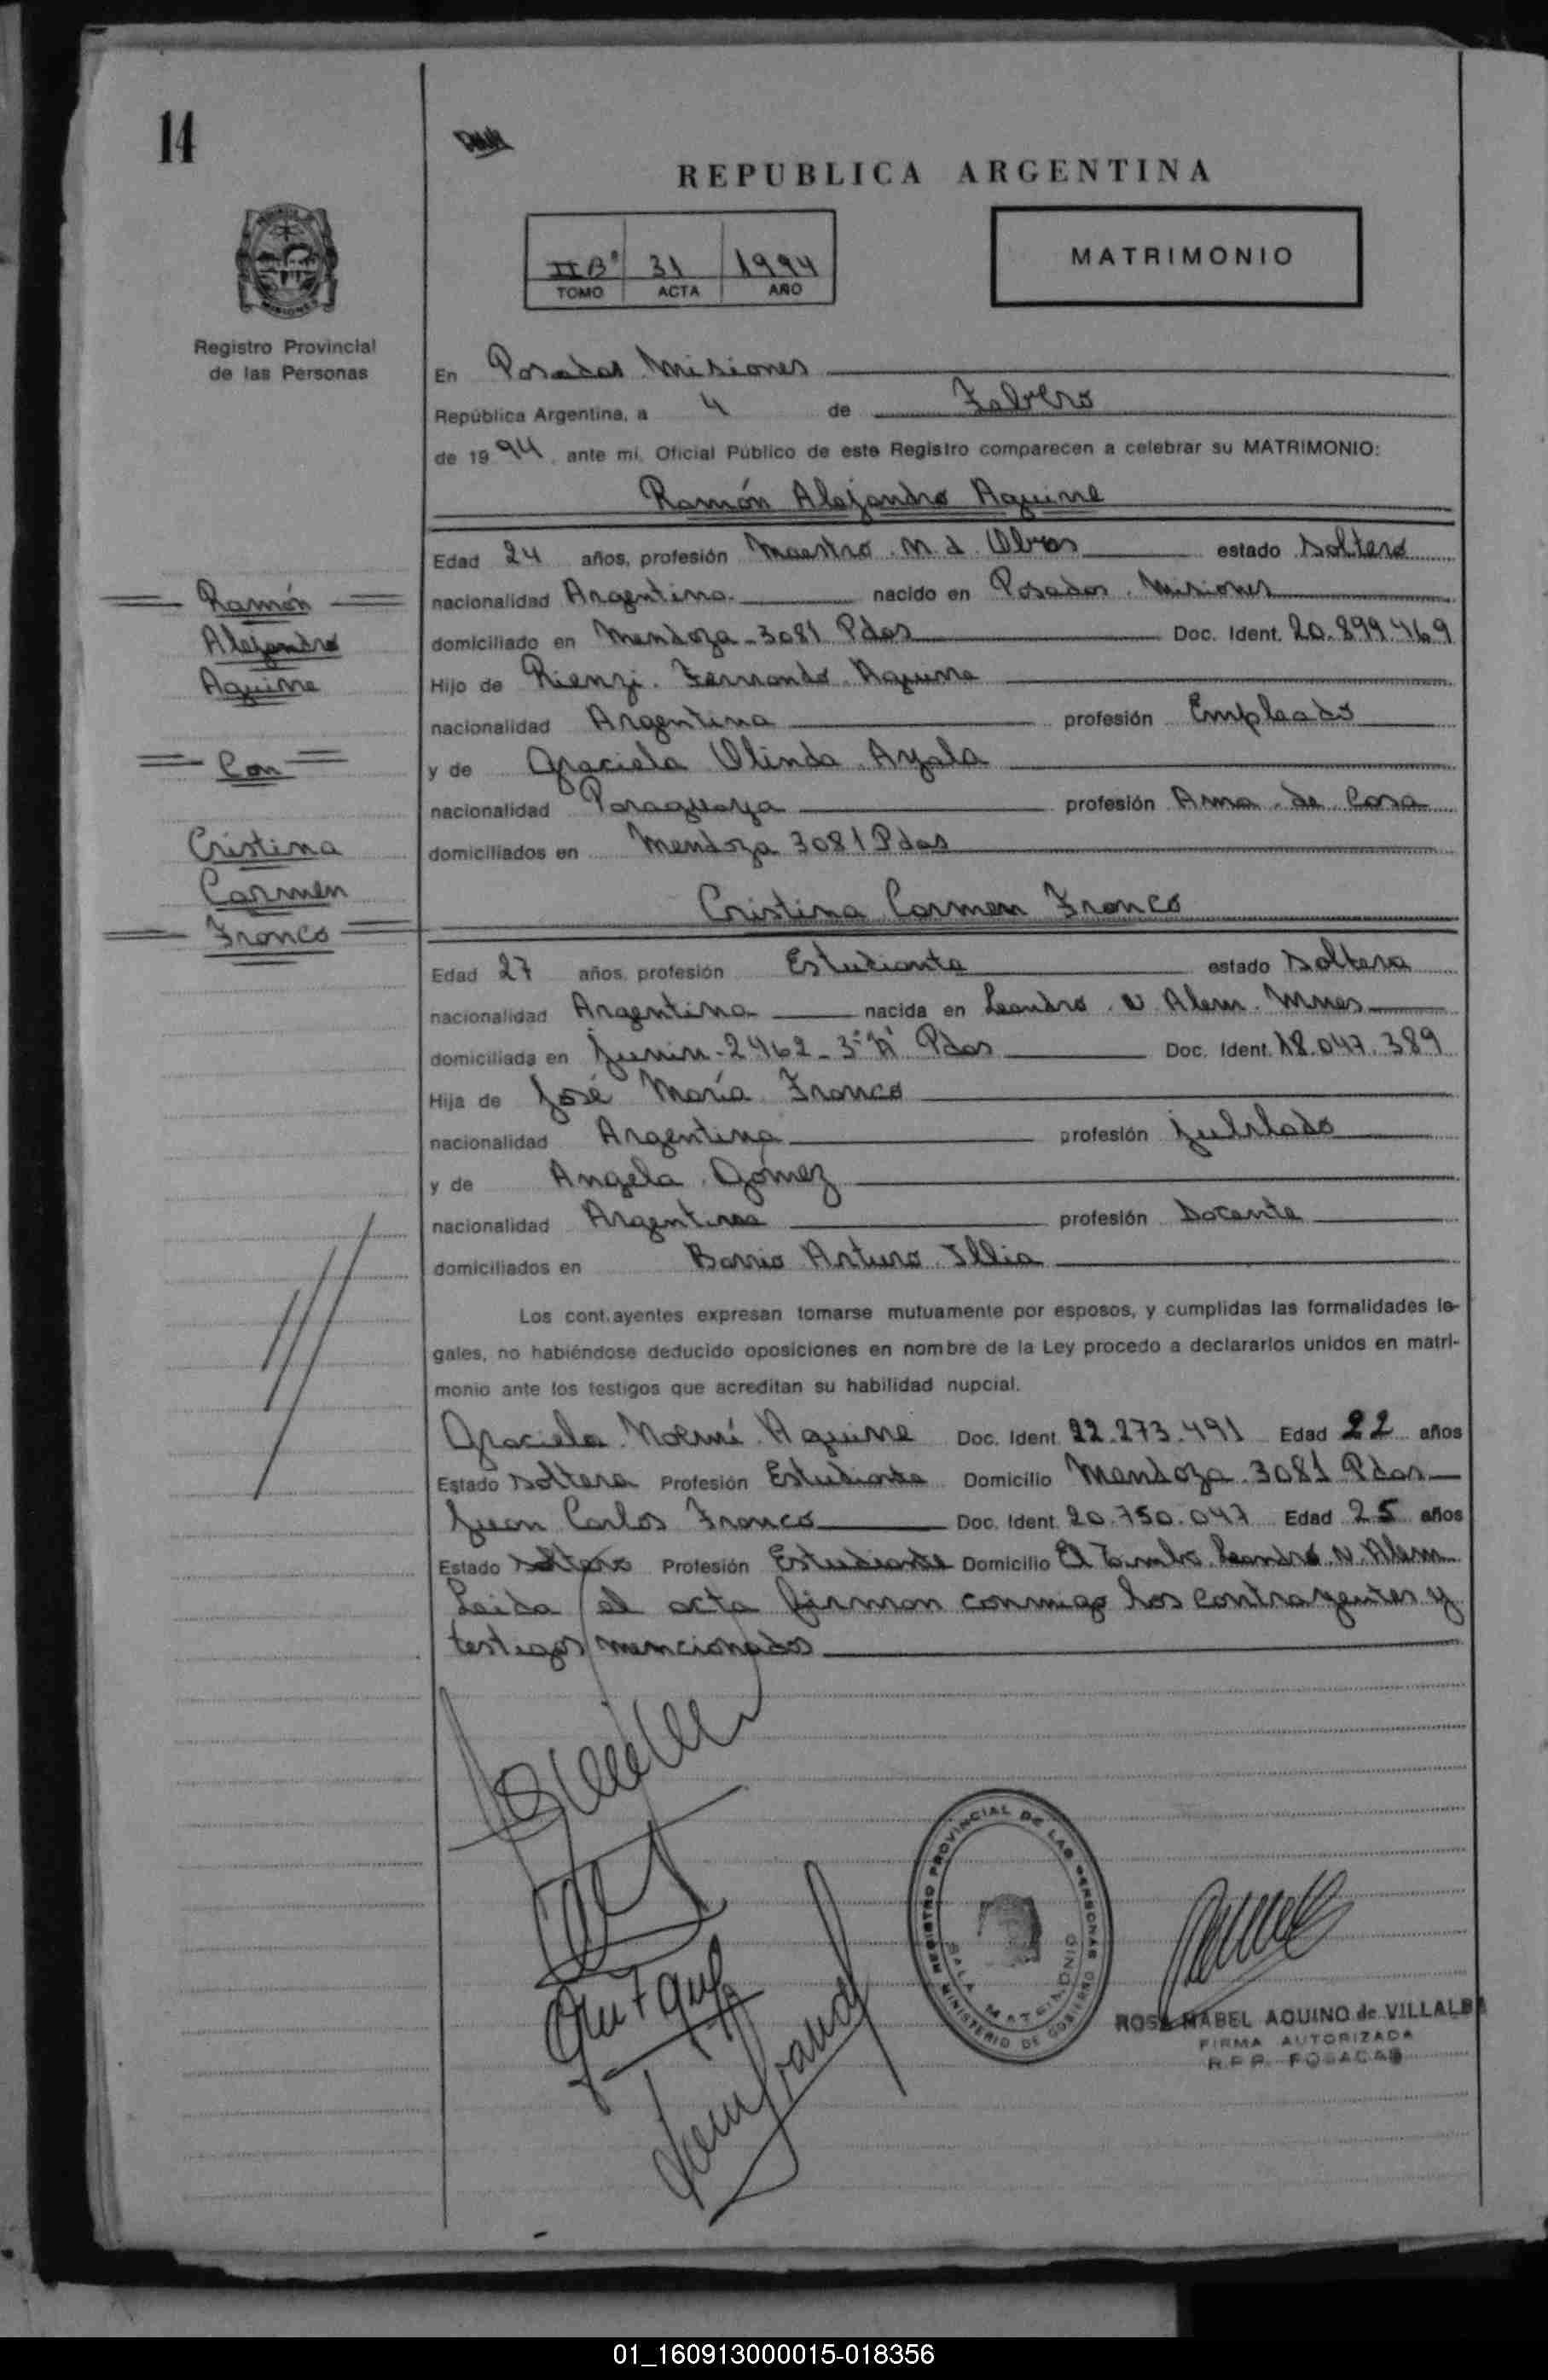 14
REPUBLICA ARGENTINA
II Bº 31 1994
TOMO ACTA AÑO
MATRIMONIO
Registro Provincial
de las Personas
En Posadas Misiones
República Argentina, a 4 de Febrero
de 1994, ante mi, Oficial Público de este Registro comparecen a celebrar su MATRIMONIO:
Ramón Alejandro Aguirre
Edad 24 años, profesión Maestro M. d. Obras estado soltero
nacionalidad Argentina nacido en Posadas. Misiones
domiciliado en Mendoza - 3081 Pdas Doc. Ident. 20.899.469
Hijo de Rienzi. Fernando Aguirre
nacionalidad Argentina profesión Empleado
y de Graciela Olinda Ayala
nacionalidad Paraguaya profesión Ama de Casa
domiciliados en Mendoza 3081 Pdas
Ramón
Alejandro
Aguirre
Con
Cristina
Carmen
Franco
Cristina Carmen Franco
Edad 27 años, profesión Estudiante estado soltera
nacionalidad Argentina nacida en Leandro N. Alem. Mnes
domiciliada en Junin - 2462 - 3º "A" Pdas Doc. Ident. 18.047.389
Hija de José María Franco
nacionalidad Argentina profesión jubilado
y de Angela Gómez
nacionalidad Argentina profesión Docente
domiciliados en Barrio Arturo Illia
Los cont.ayentes expresan tomarse mutuamente por esposos, y cumplidas las formalidades le-
gales, no habiéndose deducido oposiciones en nombre de la Ley procedo a declararlos unidos en matri-
monio ante los testigos que acreditan su habilidad nupcial.
Graciela Noemí Aguirre Doc. Ident. 22.273.491 Edad 22 años
Estado soltera Profesión Estudiante Domicilio Mendoza 3081 Pdas
Juan Carlos Franco Doc. Ident. 20.750.047 Edad 25 años
Estado soltero Profesión Estudiante Domicilio El Leandro N. Alem
Leida el acta firman conmigo los contrayentes y
testigos mencionados
REGISTRO PROVINCIAL DE LAS PERSONAS
SALA MATRIMONIO
MINISTERIO DE GOBIERNO
ROSA MABEL AQUINO de VILLALBA
FIRMA AUTORIZADA
R.P.P. POSADAS
01_160913000015-018356